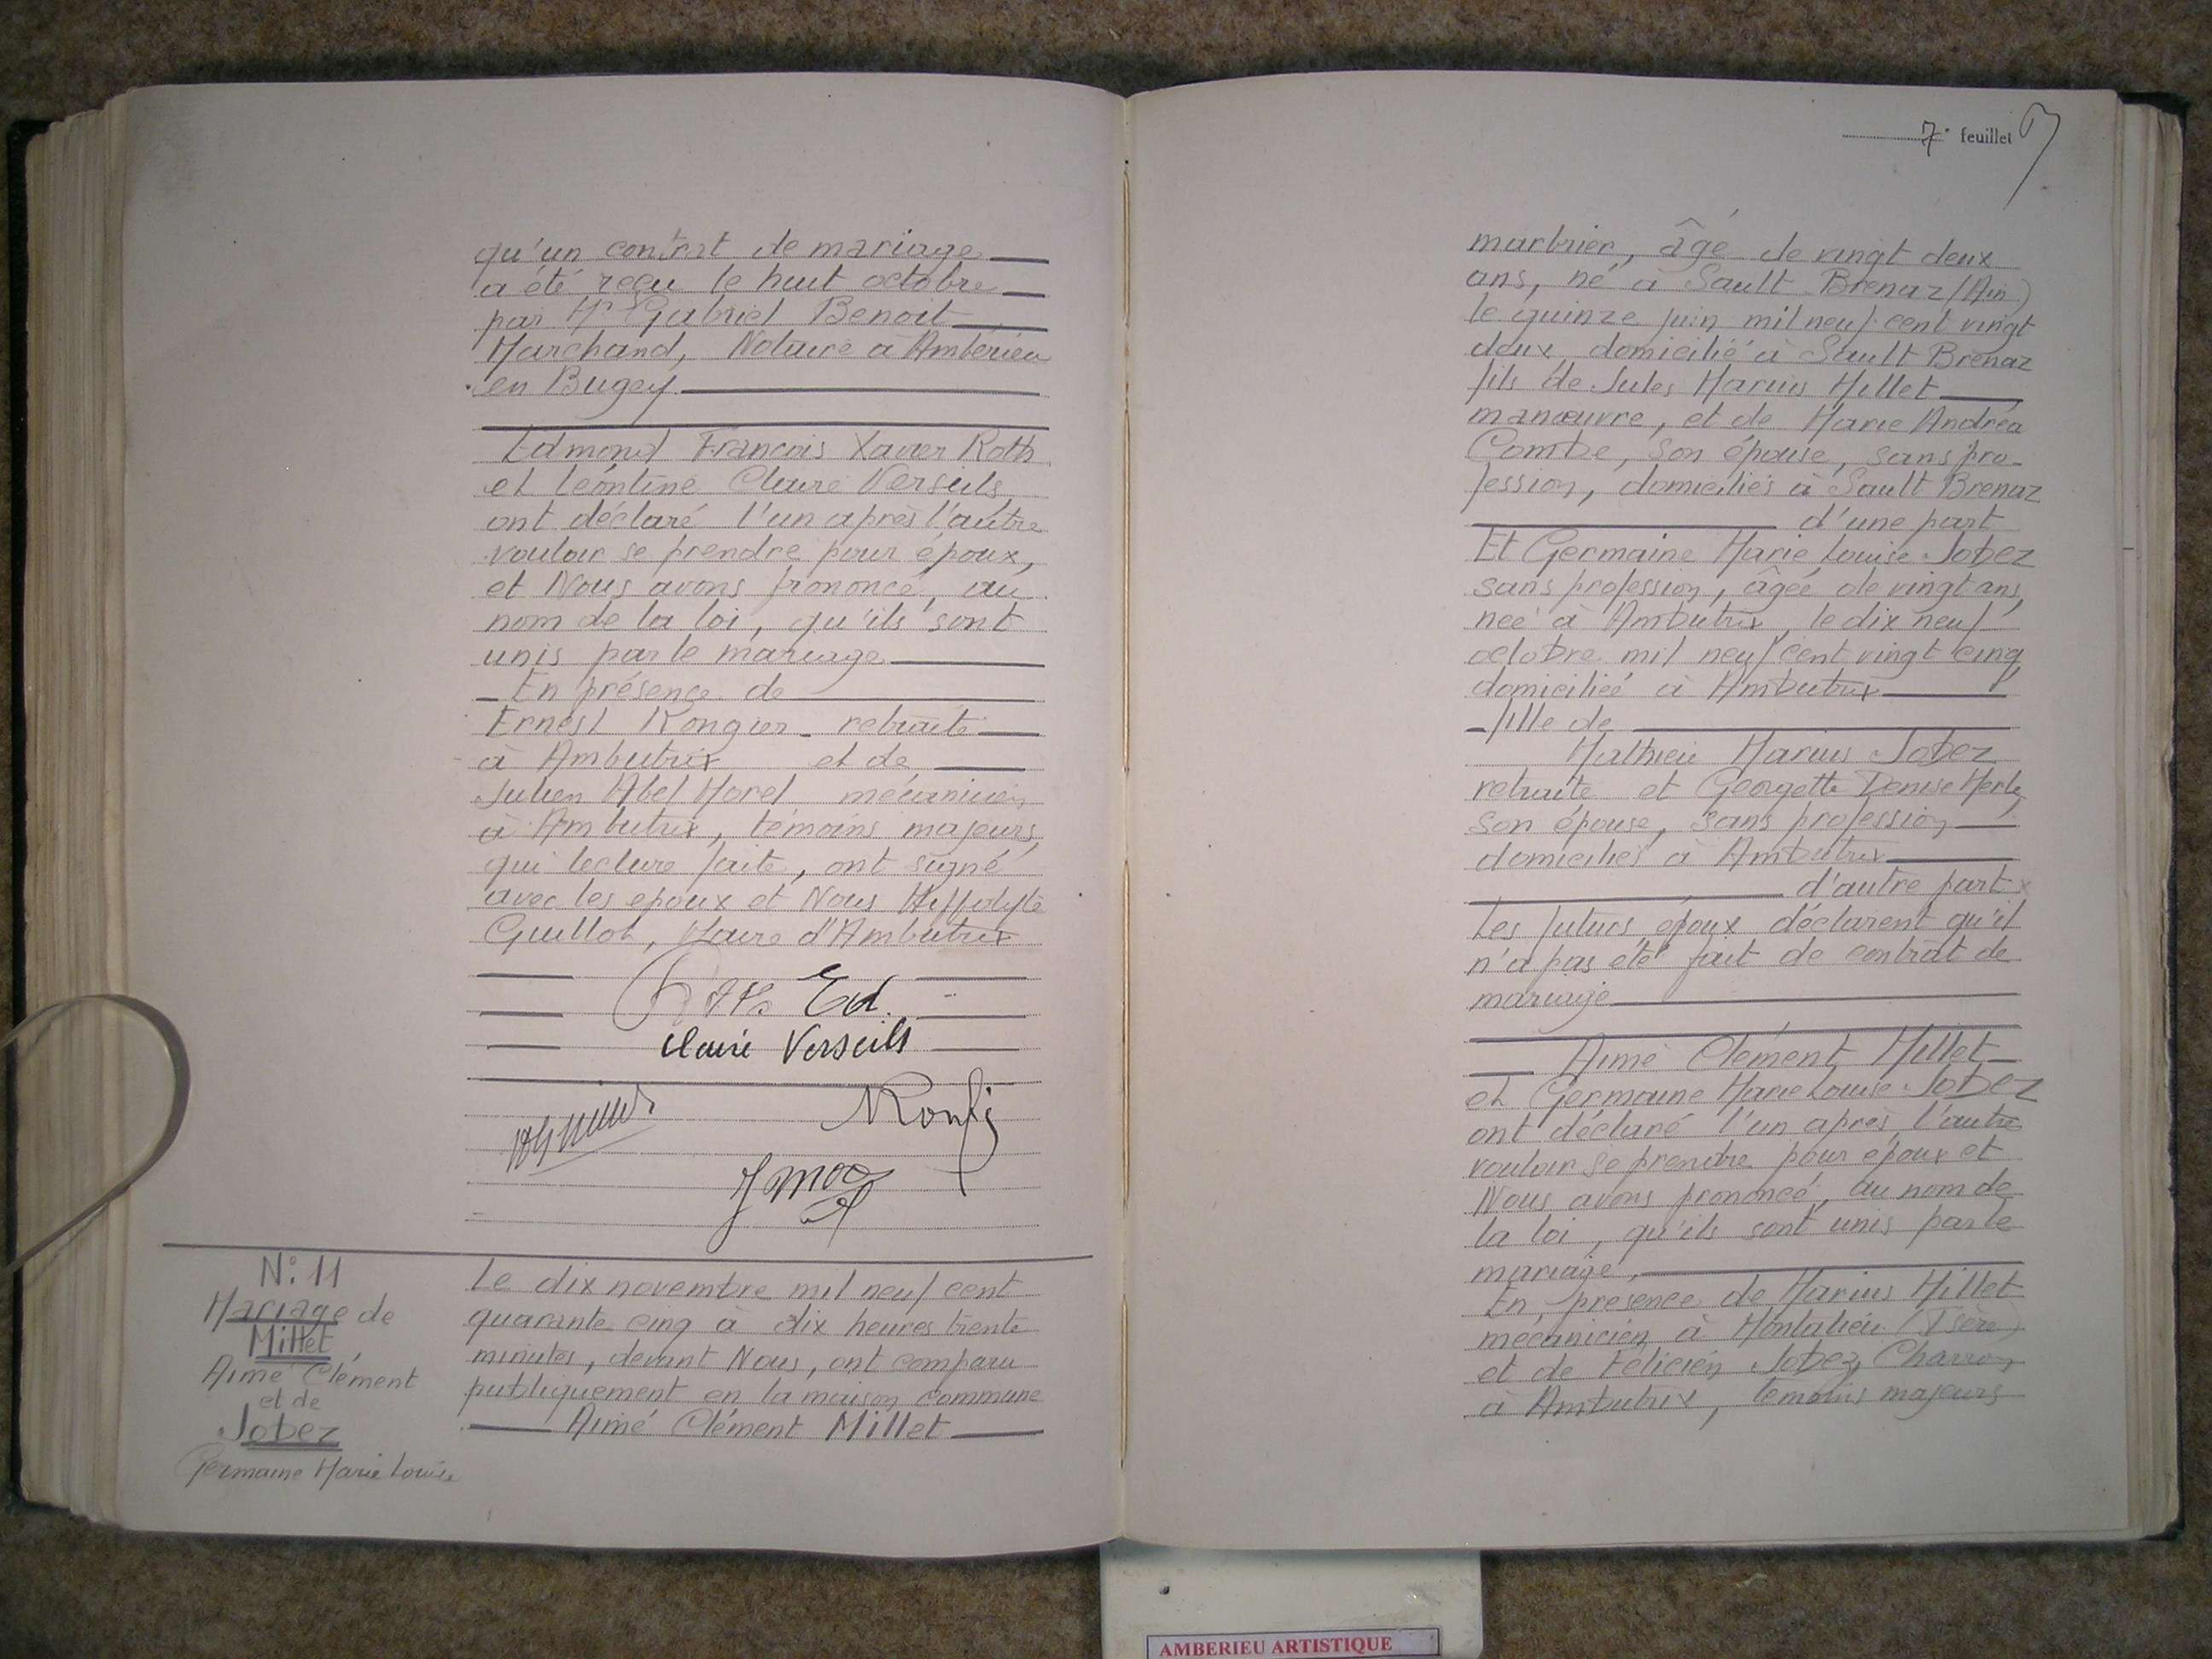 qu'un contrat de mariage
a été reçu le huit octobre
par Me Gabriel Benoit
Marchand, Notaire à Ambérieu
en Bugey.
Edmond François Xavier Roth
et Léontine Claire Verseils
ont déclaré l'un après l'autre
vouloir se prendre pour époux,
et Nous avons prononcé, au
nom de la loi, qu'ils sont
unis par le mariage
En présence de
Ernest Rongier retraité
à Ambutrix et de
Julien Abel Morel mécanicien
à Ambutrix, témoins majeurs,
qui lecture faite, ont signé
avec les epoux et Nous Hippolyte
Guillot, Maire d'Ambutrix
Ed.
Claire Verseils
N° 11
Mariage de
Millet
Aimé Clément
et de
Jobez
Germaine Marie Louise
Le dix novembre mil neuf cent
quarante cinq à dix heures trente
minutes, devant Nous, ont comparu
publiquement en la maison commune
Aimé Clément Millet
7e feuillet
marbrier, âgé de vingt deux
ans, né à Sault Brenaz (Ain)
le quinze juin mil neuf cent vingt
deux domicilié à Sault Brenaz
fils de Jules Marius Millet
manœuvre, et de Marie Andréa
Combe, son épouse, sans pro-
fession, domiciliés à Sault Brenaz
d'une part
Et Germaine Marie Louise Jobez
sans profession, âgée de vingt ans,
née à Ambutrix, le dix neuf
octobre mil neuf cent vingt cinq
domiciliée à Ambutrix
fille de
Mathieu Marius Jobez
retraité et Georgette Denise
son épouse, sans profession
domiciliés à Ambutrix
d'autre part
Les futurs époux déclarent qu'il
n'a pas été fait de contrat de
mariage
Aimé Clément Millet
et Germaine Marie Louise Jobez
ont déclaré l'un après l'autre
vouloir se prendre pour époux et
Nous avons prononcé, au nom de
la loi, qu'ils sont unis par le
mariage,
En présence de Marius Millet
mécanicien à Montalieu (Isère)
et de Félicien Jobez, Charron
à Ambutrix, témoins majeurs
AMBERIEU ARTISTIQUE